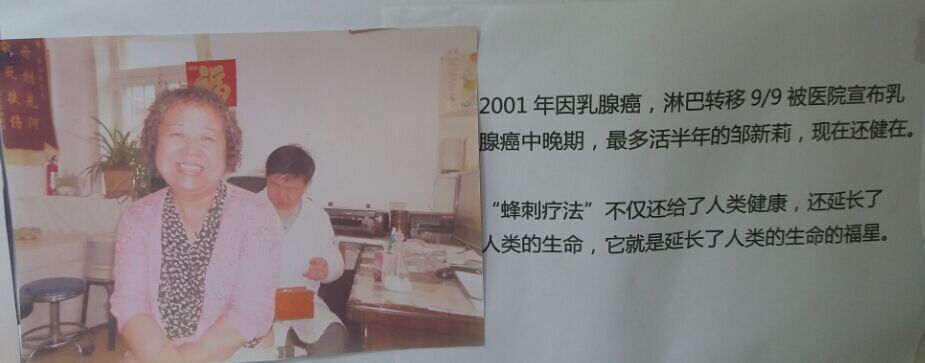 福
死扶伤
2001年因乳腺癌，淋巴转移9/9被医院宣布乳
腺癌中晚期，最多活半年的邹新莉，现在还健在。
“蜂刺疗法”不仅还给了人类健康，还延长了
人类的生命，它就是延长了人类的生命的福星。